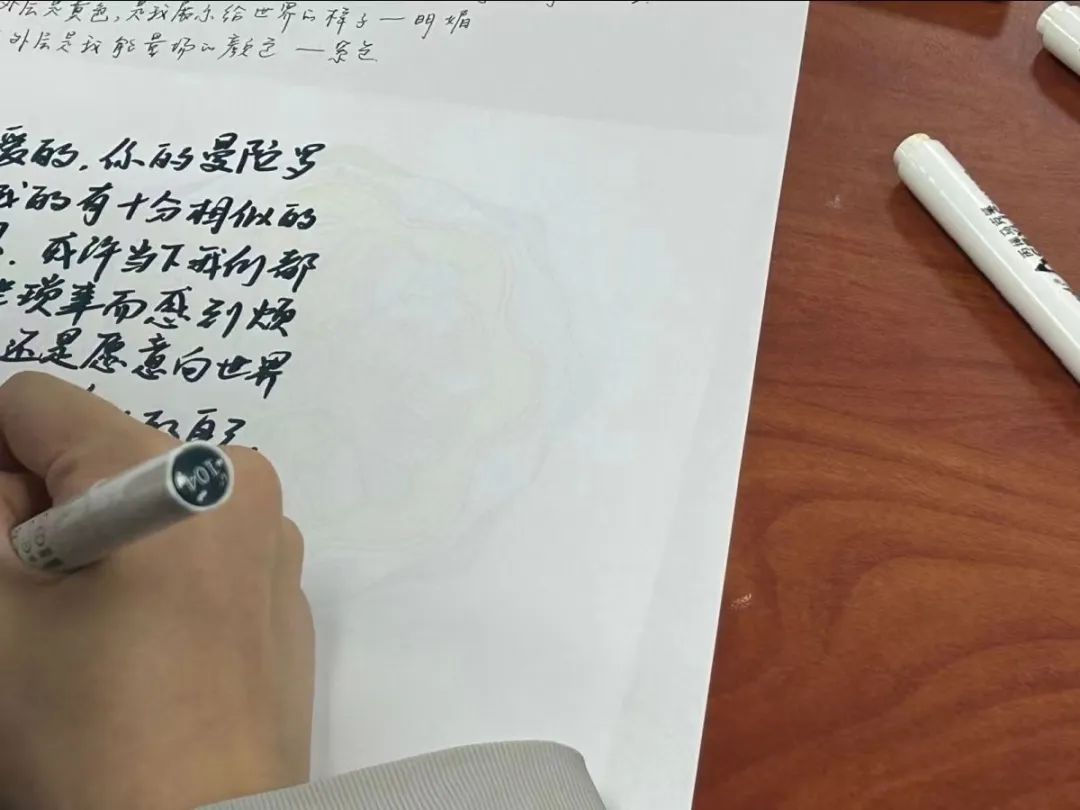 外层是黄色,是我展示给世界的样子—明媚
外层是我能量场的颜色 —紫色
爱的,你的曼陀罗
我的有十分相似的
.或许当下我们都
琐事而感到烦
还是愿意向世界
的自己.
104